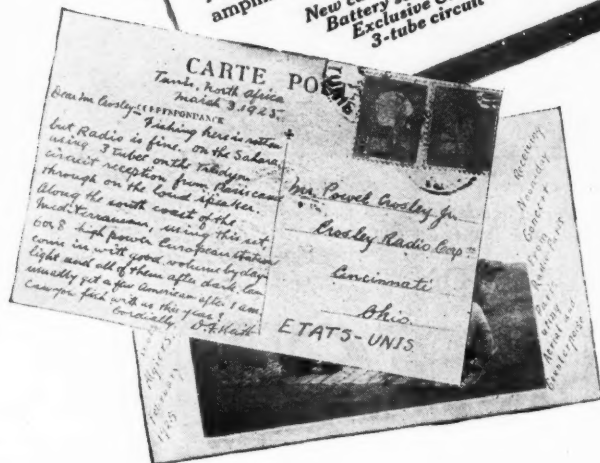 New
Battery
Exclusive
3-tube circuit
CARTE
Tunis, North Africa
March 3, 1925
CORRESPONDANCE
Dear Mr Crosley
Fishing here is rotten
but Radio is fine. On the Sahara,
using 3 tubes on the Trirdyn
circuit reception from Paris came
through on the loud speaker.
Along the south coast of the
Mediterranean, using this set,
6 or 8 high power European stations
come in with good volume by day-
light and all of them after dark. Can
usually get a few American after 1 am.
Can you fish with us this year?
Cordially
Mr. Powel Crosley Jr.
Crosley Radio Corp
Cincinnati
Ohio.
ETATS-UNIS
Receiving
Noonday
Concert
From
Radio Paris
using
Aerial and
Counterpoise
Algiers